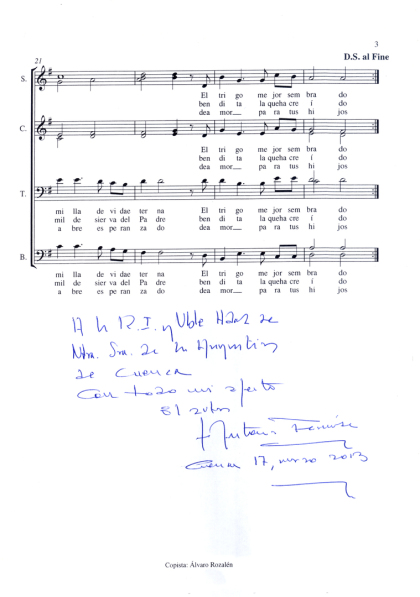 3
D.S. al Fine
21
S.
El tri go me jor sem bra do
ben di ta la queha cre í do
dea mor pa ra tus hi jos
C.
El tri go me jor sem bra do
ben di ta la queha cre í do
dea mor pa ra tus hi jos
T.
mi lla de vi dae ter na El tri go me jor sem bra do
mil de sier va del Pa dre ben di ta la queha cre í do
a bre es pe ran za do dea mor pa ra tus hi jos
B.
mi lla de vi dae ter na El tri go me jor sem bra do
mil de sier va del Pa dre ben di ta la queha cre í do
a bre es pe ran za do dea mor pa ra tus hi jos
A la R.I. y Vble Hdad de
Ntra. Sra. de la Angustias
de Cuenca
Con todo mi afecto
El autor
Cuenca 17, marzo 2013
Copista: Álvaro Rozalén